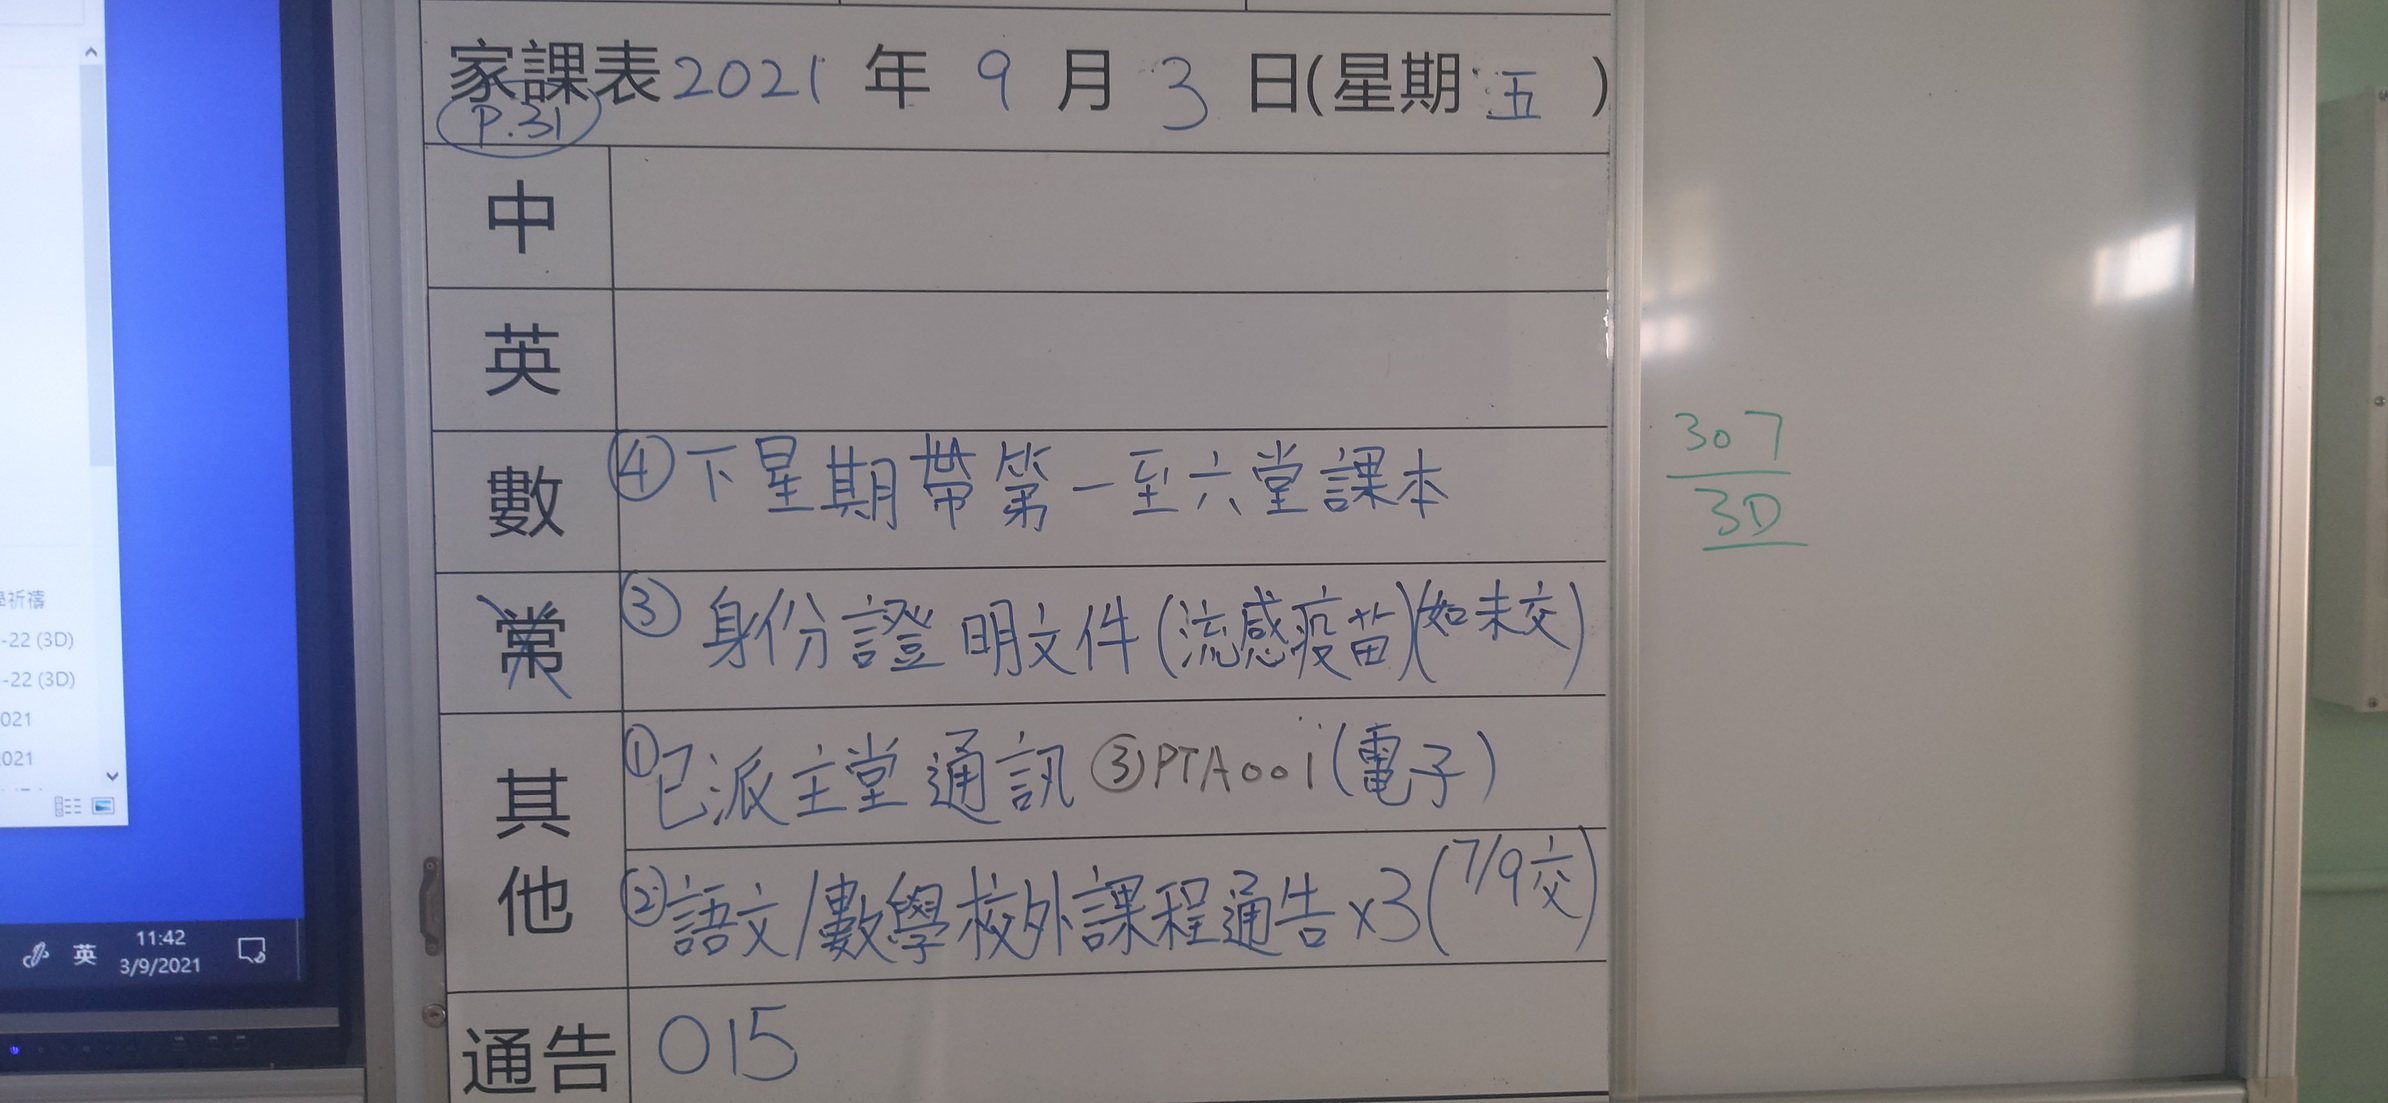 家課表 2021 年 9 月 3 日(星期 五 )
P.31
中
英
數 ④下星期帶第一至六堂課本
常 ③身份證明文件(流感疫苗)(如未交)
其他 ①已派主堂通訊 ③PTA001(電子)
②語文/數學校外課程通告x3(7/9交)
通告 015
307
3D
祈禱
-22 (3D)
-22 (3D)
021
021
英 11:42
3/9/2021